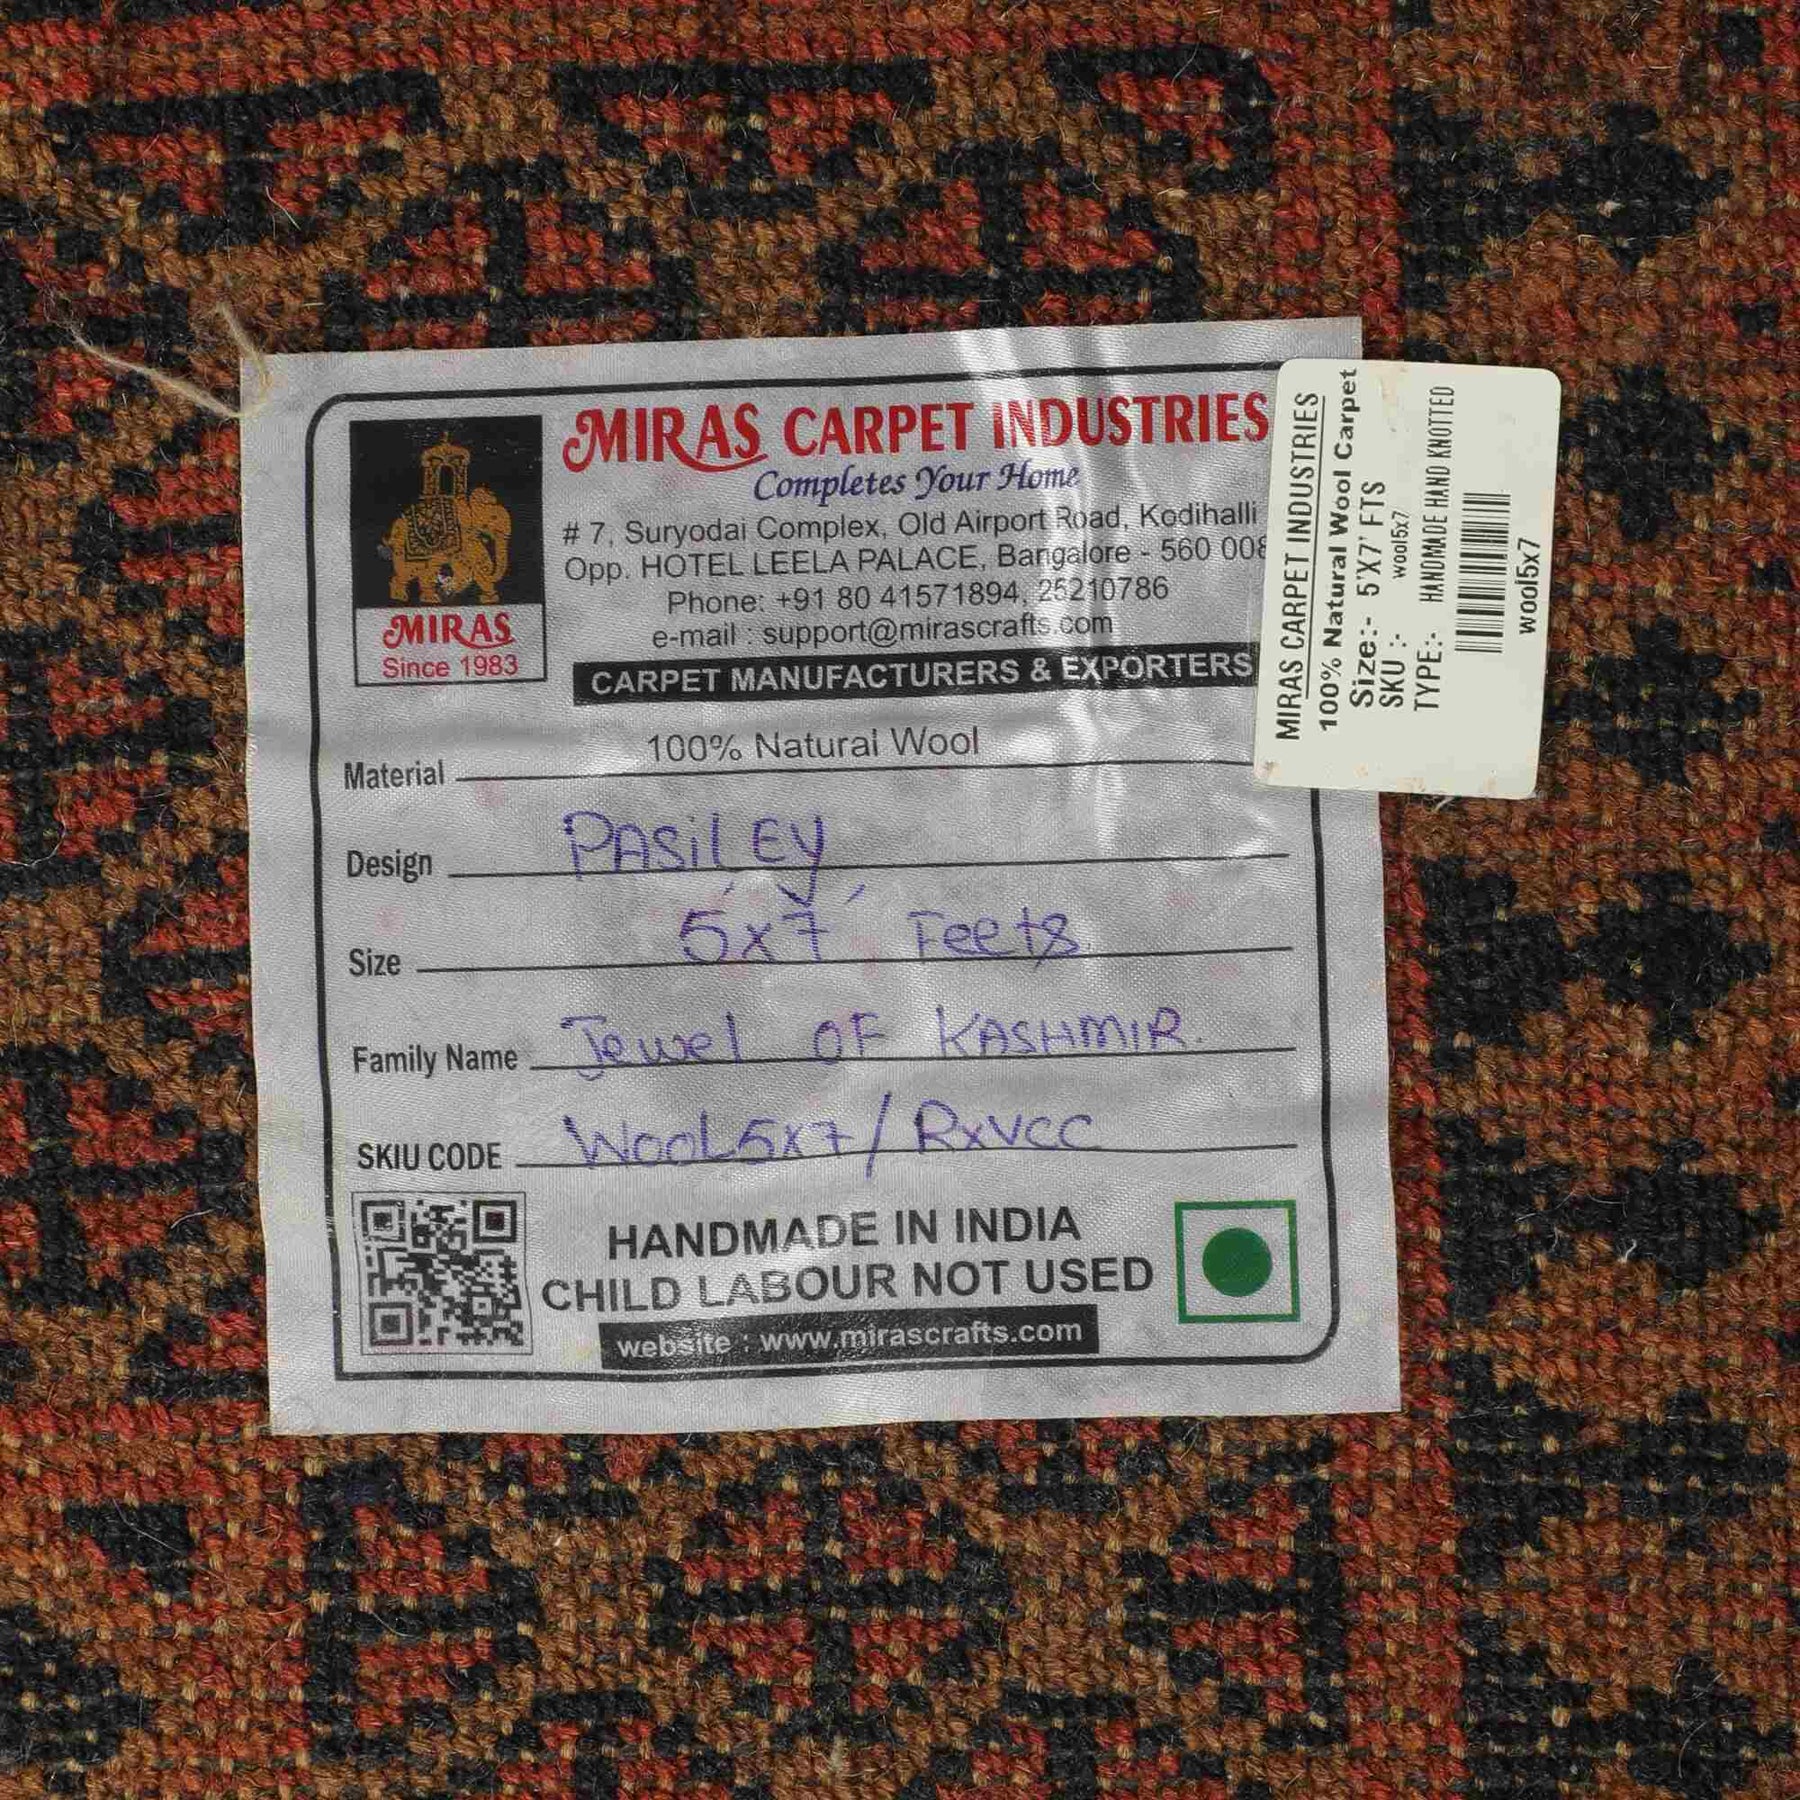 MIRAS CARPET INDUSTRIES
Completes Your Home
# 7, Suryodai Complex, Old Airport Road, Kodihalli
Opp. HOTEL LEELA PALACE, Bangalore - 560 008
Phone: +91 80 41571894, 25210786
e-mail : support@mirascrafts.com
CARPET MANUFACTURERS & EXPORTERS
MIRAS
Since 1983
Material 100% Natural Wool
Design PASilEy
Size 5'x7' Feets
Family Name Jewel OF KASHMIR.
SKIU CODE WOOL5x7/RxVCC
HANDMADE IN INDIA
CHILD LABOUR NOT USED
website : www.mirascrafts.com
MIRAS CARPET INDUSTRIES
100% Natural Wool Carpet
Size:- 5'X7' FTS
SKU :- wool5x7
TYPE:- HANDMADE HAND KNOTTED
wool5x7